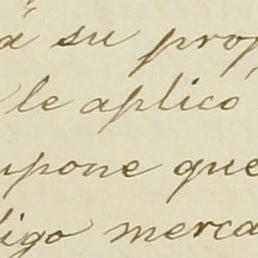 á su prop
le aplicó
upone que
digo merca